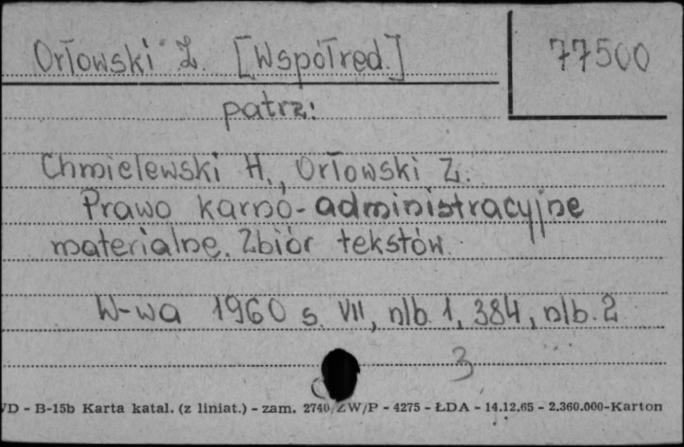 Orłowski Z. [Współred.]
77500
patrz:
Chmielewski H., Orłowski Z.
Prawo karno-administracyjne
materialne. Zbiór tekstów.
W-wa 1960 s. VII, nlb. 1, 384, nlb. 2
3
VD - B-15b Karta katal. (z liniat.) - zam. 2740/ZW/P - 4275 - ŁDA - 14.12.65 - 2.360.000-Karton